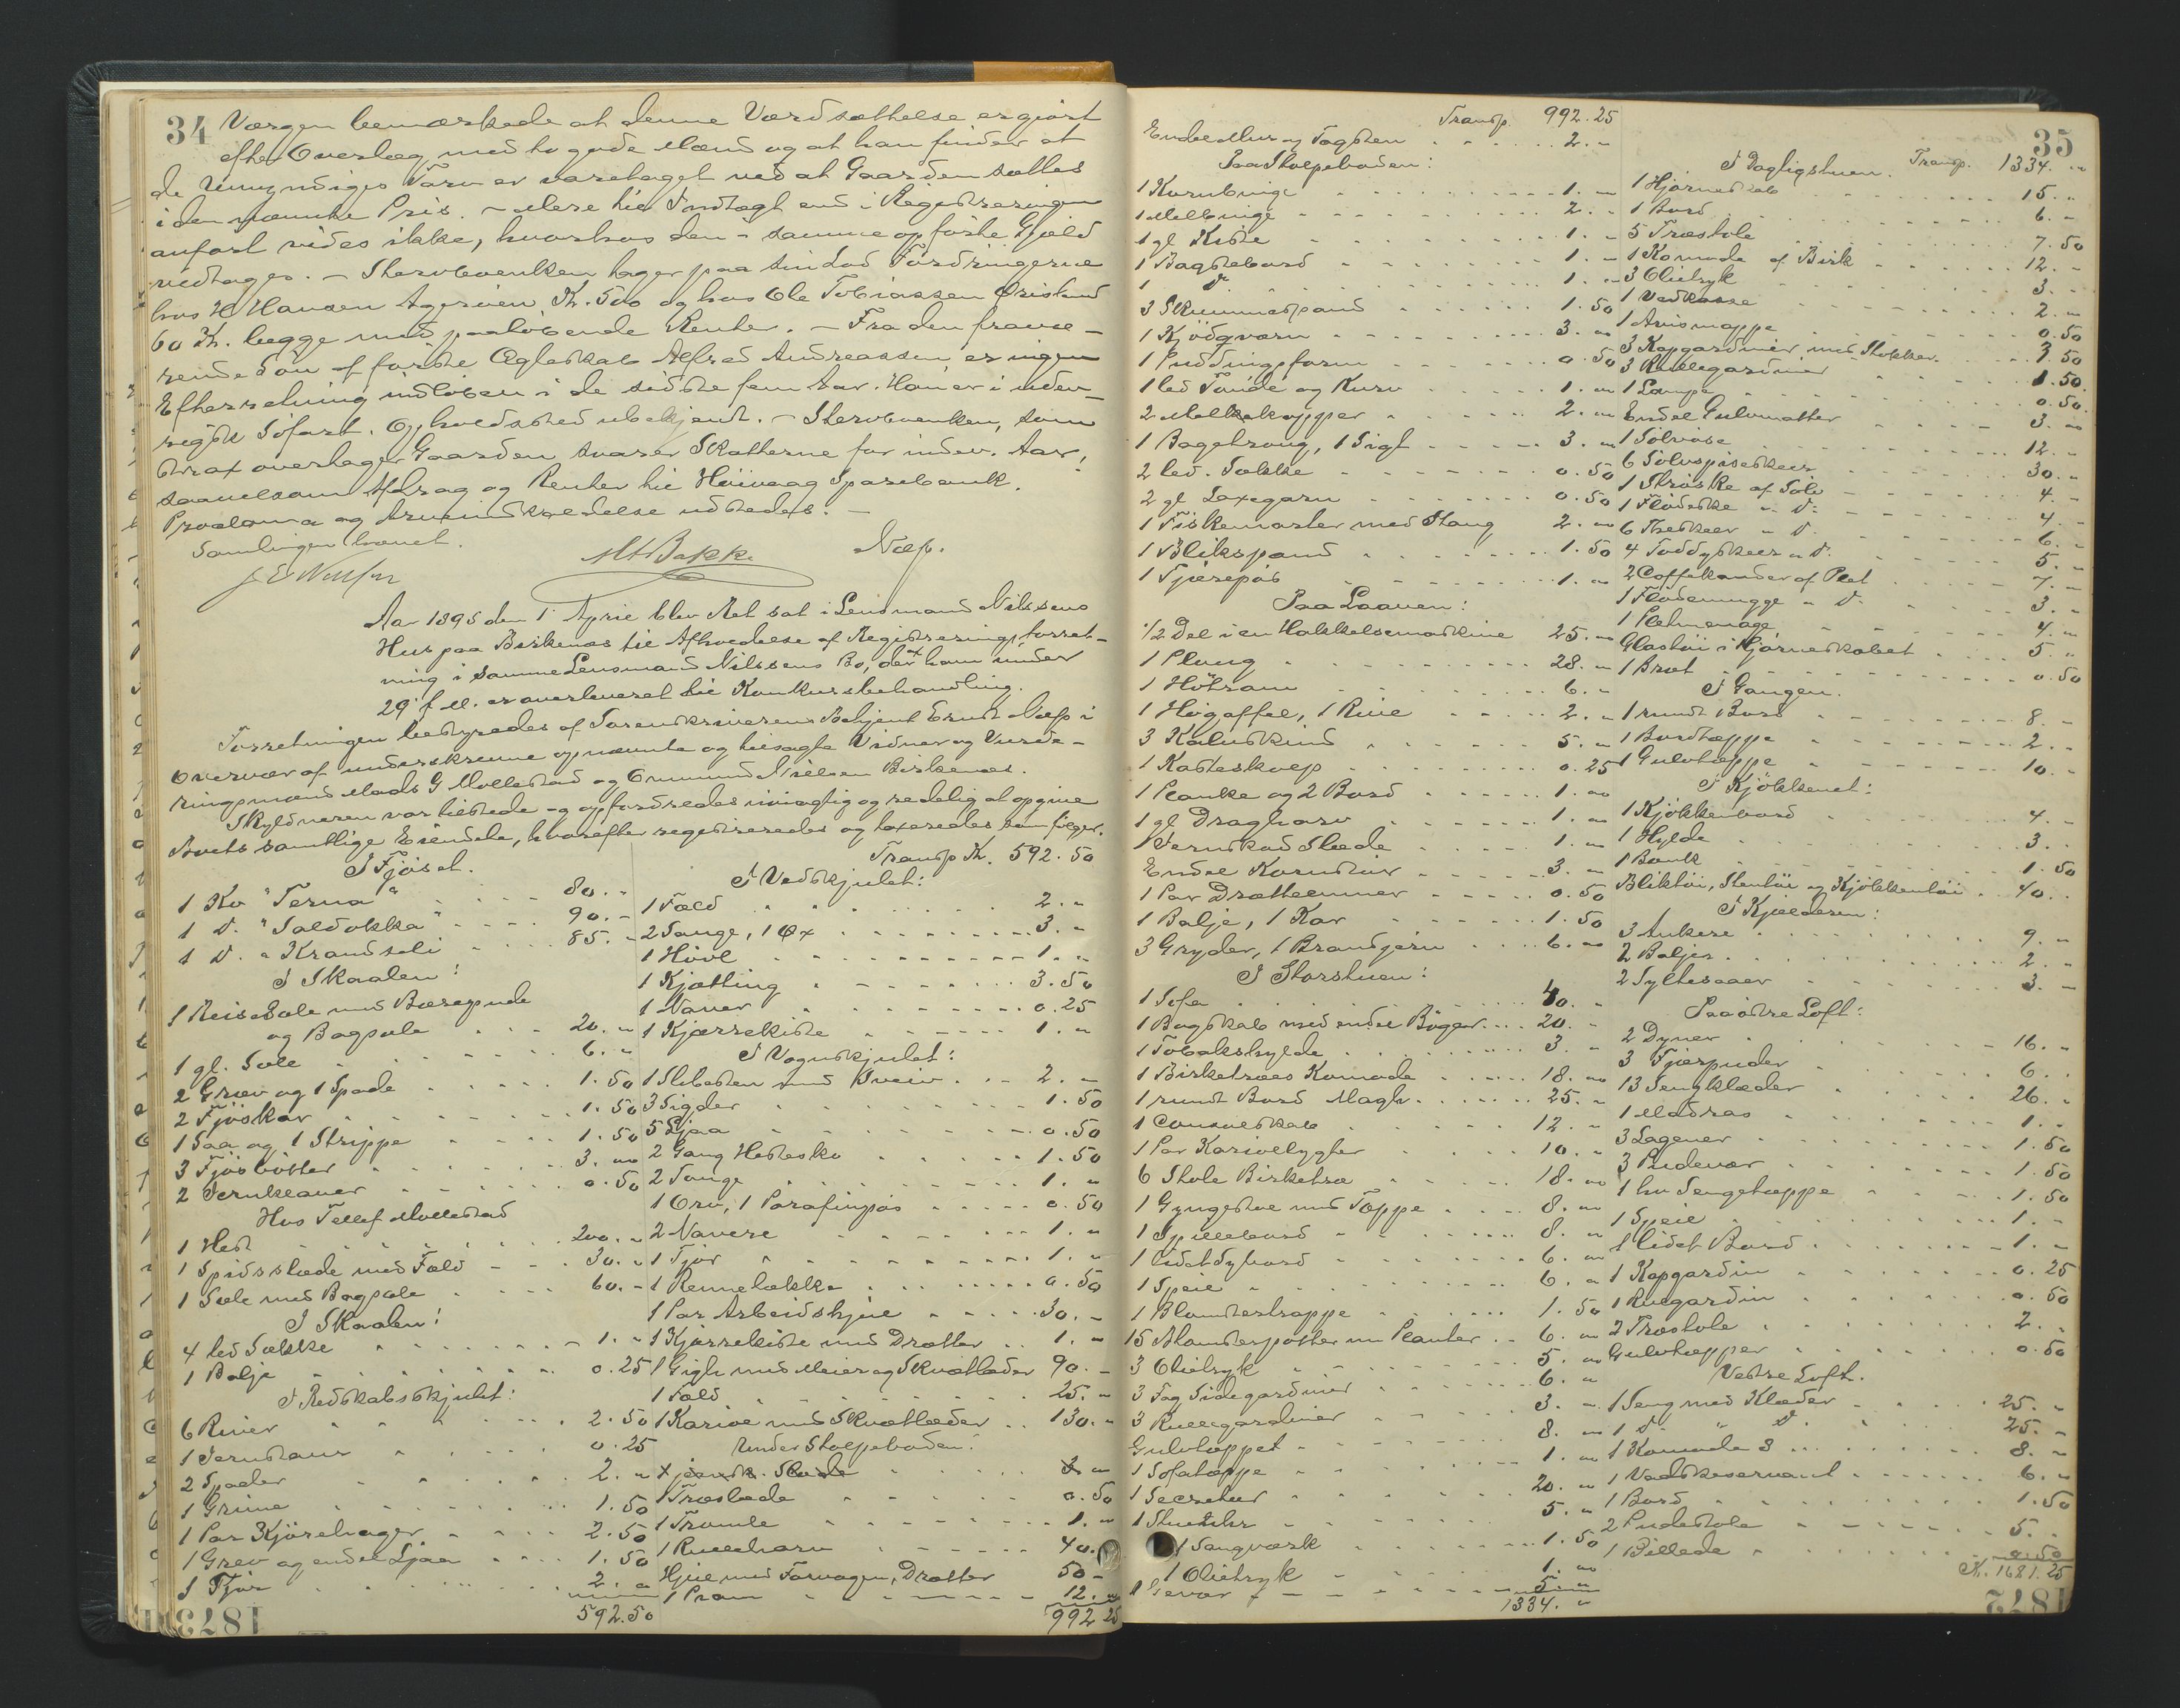 34 Værgen bemærkede at denne Værdsættelse er gjort
efter Overlæg med to gode Mænd og at han finder at
de Umyndiges Tarv er varetaget ved at Gaarden sættes
i den nævnte Pris. - Mere til Indtægt end i Registreringen
anført vides ikke, hvorhos den i samme opførte Gjæld
vedtages. - Stervboenken tager paa sin Lod Fordringerne
hos H Hansen Agerøien Kr. 500 og hos Ole Tobiassen
60 Kr. begge med paaløbende Renter. - Fra den fravæ-
rende Søn af første Ægteskab Alfred Andreassen er ingen
Efterretning indløben i de sidste fem Aar. Han er i uden-
rigsk Søfart. Opholdssted ubekjendt. - Stervboenken, som
strax overtager Gaarden svarer Skatterne for indev. Aar,
saavelsom Afdrag og Renter til Høivaag Sparebank.
Proclama og Arveindkaldelse udstedes. -
Samlingen hævet.
MABakke Næss.
Aar 1895 den 1 April blev Ret sat i Lensmand Nilssens
Hus paa Birkenæs til Afholdelse af Registreringsforret-
ning i samme Lensmand Nilssens Bo, der x ham under
29 f. M. er overleveret til Konkursbehandling.
Forretningen bestyredes af Sorenskriverens Betjent Ernst Næss i
Overvær af underskrevne opnævnte og tilsagte Vidner og Vurde-
ringsmænd Mads G Mollestad og Ommund Nielsen Birkenæs.
Skyldneren var tilstede og opfordredes nøiagtig og redelig at opgive
Boets samtlige Eiendele, hvorefter registreredes og taxeredes som følger.
I Fjøset.
1 Ko "Terna" 80. "
1 D. "Saldokka" 90. -
1 D. " Krandseli 85. -
I Skaalen:
1 Reisesale med Bærepude
og Bagsale 20. "
1 gl. Sele 6. "
2 Grev og 1 Spade 1. 50
2 Fjøskar 1. 50
1 Saa og 1 Strippe 1. 50
3 Fjøsbøtter 3. "
2 Jernkrauer 0. 50
Hos Tellef Mollestad
1 Hest 200. "
1 Spidsslæde med Fæld 30. "
1 Sele med Bagsele 60. -
I Skaalen:
4 led Sække 1. "
1 Balje 0. 25
I Redskabsskjulet:
6 River 2. 50
1 Jernstaur 0. 25
2 Spader 2. "
1 Grime 1. 50
1 Par Kjørehager 2. 50
1 Grev og endel Ljaa 1. 50
1 Tjor 2. "
592. 50
Transp Kr. 592. 50
I Vedskjulet:
1 Fæld 2. "
2 Sauge, 1 Øx 3. "
1 Høvl 1. "
1 Kjætting 3. 50
1 Naver 0. 25
1 Kjærrekiste 1. "
I Vognskjulet:
1 Slibesten med Sveiv 2. -
3 Sigder 1. 50
5 Ljaa 0. 50
2 Gang Hestesko 1. 50
2 Tange 1. "
1 Orv, 1 Parafinspas 0. 50
2 Navere 1. "
1 Tjor 1. "
1 Rennelække 0. 50
1 Par Arbeidshjul 30. -
1 Kjærrekiste med Drætter 1. "
1 Gigh med Meier og Skvætlæder 90. -
1 Fæld 25. "
1 Kariol med Skvætlæder 130. "
Under Stolpeboden:
1 jernsk. Slæde 2. "
1 Træslæde 0. 50
1 Tromle 1. "
1 Rulleharv 40. "
Hjul med Forvogn, Drætter 50 -
1 Pram 12. "
992 25
35
Transp. 992. 25
Endel Mur og Tagsten 2. "
Paa Stolpeboden:
1 Kornbinge 1. "
1 Melbinge 2. "
1 gl Kiste 1. "
1 Bagstebord 1. "
1 D 1. "
3 Skummespand 1. 50
1 Kjødqværn 3. "
1 Puddingsform 0. 50
1 led Tønde og Kurv 1. "
2 Melkekopper 2. "
1 Bagetroug, 1 Sigt 3. "
2 led. Sække 0. 50
2 gl Laxegarn 0. 50
1 Fiskemarter med Stang 2. "
1 Blikspand 1. 50
1 Tjærepas 1. "
Paa Laaven:
1/2 Del i en Hakkelsemaskine 25. "
1 Ploug 28. "
1 Høtram 6. "
1 Høgaffel, 1 Rive 2. "
3 Kalveskind 5. "
1 Kasteskovl 0. 25
1 Planke og 2 Bord 1. "
1 gl Dragharv 1. "
1 Jernskod Slæde 1. "
Endel Kornstør 3. "
1 Par Drætlemmer 0. 50
1 Balje, 1 Kar 1. 50
3 Gryder, 1 Brandjern 6. "
I Storstuen:
1 Sofa 40. "
1 Bogskab med endel Bøger 20. "
1 Tobakshylde 3. "
1 Birketræes Komode 18. "
1 rundt Bord Magh. 25. "
1 Consolskab 12. "
1 Par Kariollygter 10. "
6 Stole Birketræ 18. "
1 Gyngestol med Tæppe 8. "
1 Spillebord 8. "
1 lidet Sybord 6. "
1 Speil 6. "
1 Blomstertrappe 1. 50
15 Blomsterpotter m Planter 6. "
3 Olietryk 5. "
3 Fag Sidegardiner 6. "
3 Rullegardiner 3. "
Gulvtæppet 8. "
1 Sofatæppe 1. "
1 Secretær 20. "
1 Stueuhr 5. "
1 Sangværk 1. 50
1 Olietryk 1. "
1 Gevær 5. "
1334. "
Transp. 1334. "
I Dagligstuen.
1 Hjørneskab 15. "
1 Bord 6. "
5 Træstole 7. 50
1 Komode af Birk 12. "
3 Olietryk 3. "
1 Vedkasse 2. "
1 Avismappe 0. 50
3 Kapgardiner med Stokker 1. 50
3 Rullegardiner 1. 50.
1 Lampe 0. 50.
Endel Gulvmatter 3. "
1 Sølvøse 12. "
6 Sølvspiseskeer 30. "
1 Strøske af Sølv 4. -
1 Flødeske " D: 4. "
6 Theskeer " D. 6. "
4 Toddyskeer " D. 5. "
2 Coffekander af Plet 7. -
1 Flødemugge " D. 3. "
1 Pletmenage 4. "
Glastøi i Hjørneskabet 5. "
1 Bræt 0. 50
I Gangen.
1 rundt Bord 8. "
1 Bordtæppe 2. "
1 Gulvtæppe 10. "
I Kjøkkenet:
1 Kjøkkenbord 4. "
1 Hylde 3. "
1 Bænk 1. 50
Bliktøi, Stentøi og Kjøkkentøi 40. "
I Kjælderen:
3 Ankere 9. "
2 Baljer 2. "
2 Syltesaaer 3. "
Paa østre Loft:
2 Dyner 16. "
3 Fjærpuder 6. "
13 Sengklæder 26. "
1 Madras 1. "
3 Lagener 1. 50
3 Pudevar 1. 50
1 hv Sengetæppe 1. 50
1 Speil 1. "
1 lidet Bord 1. "
1 Kapgardin 0. 25
1 Rulgardin 0. 50
2 Træstole 2. "
Gulvtæpper 0. 50
Vestre Loft.
1 Seng med Klæder 25. "
1 D. " D. 25. "
1 Komode 8 8. "
1 Vaskeservant 6. "
1 Bord 1. 50
2 Pudestole 5. "
1 Billede 0. 50
Kr. 1681. 25